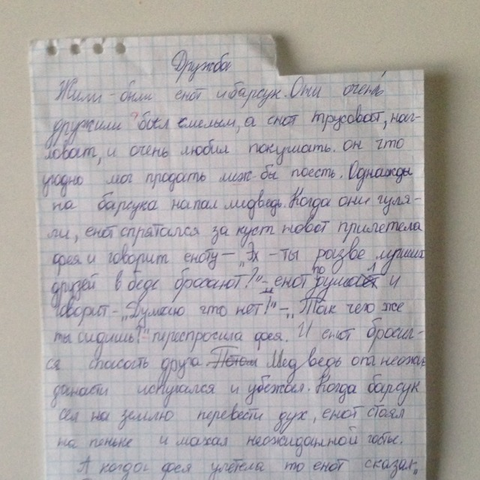 Дружба
Жили-были енот и барсук. Они очень
дружили был смелым, а енот трусоват, наг-
ловат, и очень любил покушать. он что
угодно мог продать лиж-бы поесть. Однажды
на барсука напал медведь. Когда они гуля-
ли, енот спрятался за куст и вот прилетела
фея и говорит еноту - „Эх - ты разве лучших
друзей в беде бросают?" - енот подумал и
говорит - „Думаю что нет!" - „Так чего же
ты сидишь!" переспросила фея. И енот бросил-
ся спасать друга. Потом Медведь от неожи
даности испугался и убежал. Когда барсук
сел на землю перевести дух, енот стоял
на пеньке и махал неожиданной
А когда фея улетела то енот сказал: